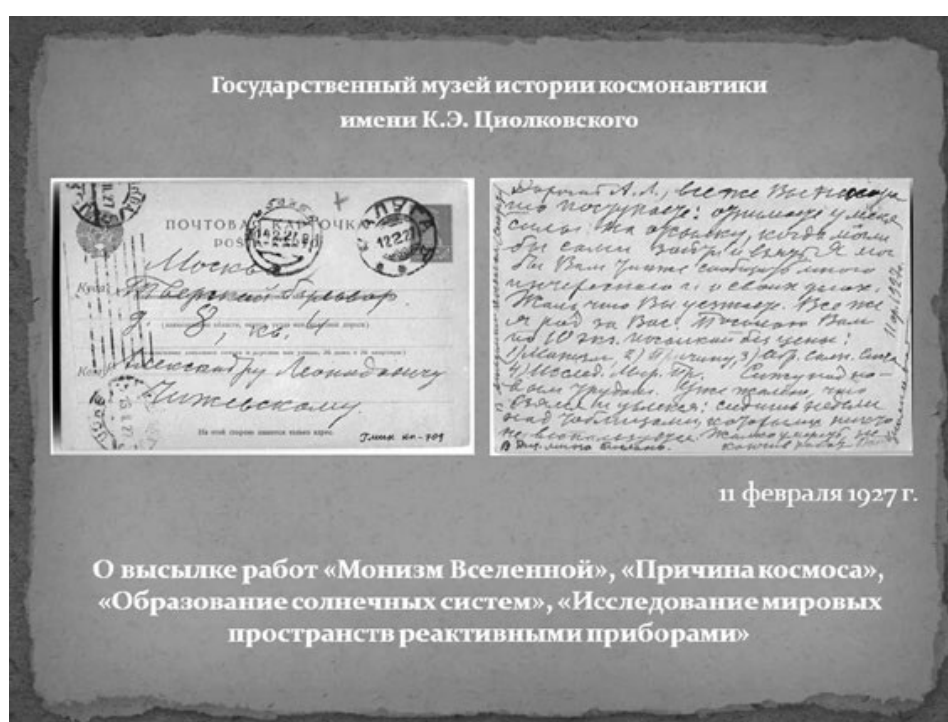 Государственный музей истории космонавтики
имени К.Э. Циолковского
ПОЧТОВАЯ КАРТОЧКА
КАЛУГА
12 2 27
Москва
Куда:
Тверской бульвар
д. 8, кв. 4
Александру Леонидовичу
Чижевскому.
На этой стороне пишется только адрес.
Гмик кп-709
Дорогой А.Л., все же Вы
силы на
бы сами и взять. Я мог
бы Вам сообщить много
интересного и о своих делах.
Жаль, что Вы уезжаете. Все же
я рад за Вас. Посылаю Вам
по 10 экз. посылкой без цены:
1) Монизм, 2) Причину, 3) Обр. солн. сист.
4) Исслед. Мир. пр. Сижу над но-
вым трудом. Уже жалею, что
взялся и увлекся: сидишь недели
над таблицами, которыми никто
не
11 фев. 1927 г.
11 февраля 1927 г.
О высылке работ «Монизм Вселенной», «Причина космоса»,
«Образование солнечных систем», «Исследование мировых
пространств реактивными приборами»